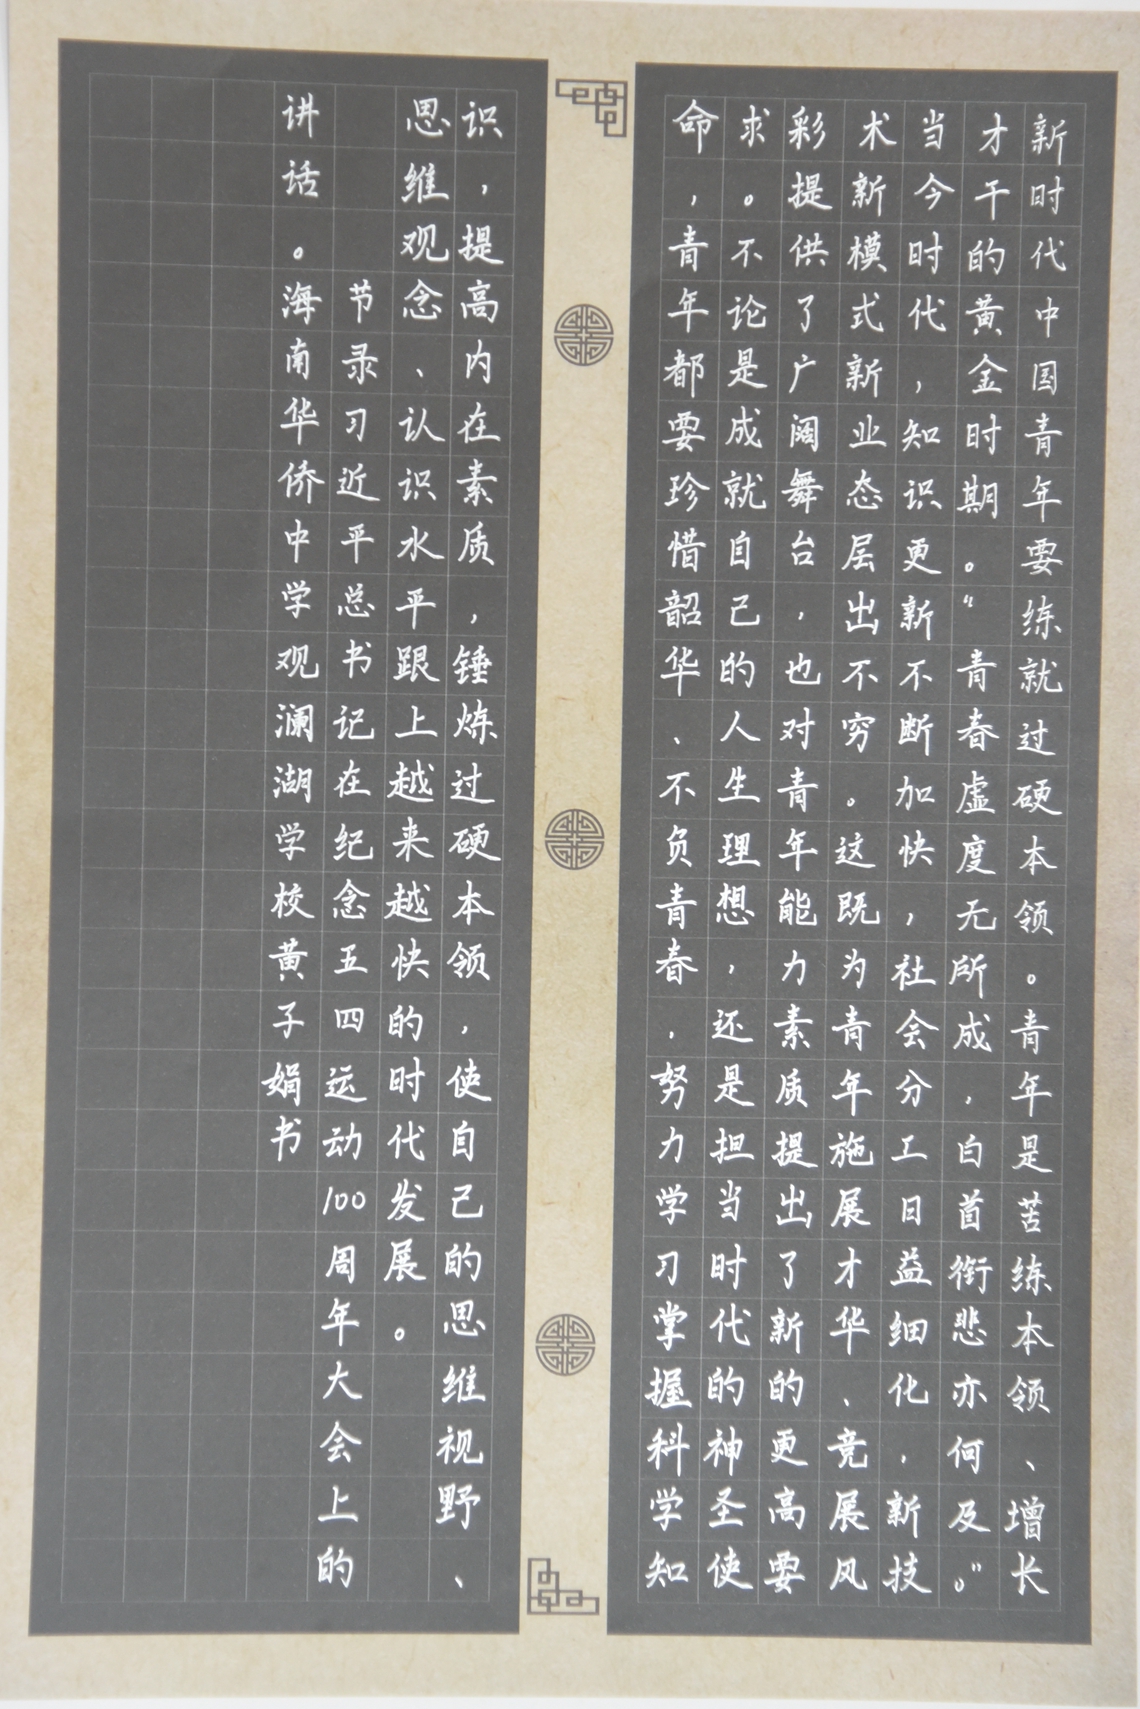 新时代中国青年要练就过硬本领。青年是苦练本领、增长
才干的黄金时期。“青春虚度无所成，白首衔悲亦何及。”
当今时代，知识更新不断加快，社会分工日益细化，新技
术新模式新业态层出不穷。这既为青年施展才华、竞展风
彩提供了广阔舞台，也对青年能力素质提出了新的更高要
求。不论是成就自己的人生理想，还是担当时代的神圣使
命，青年都要珍惜韶华、不负青春，努力学习掌握科学知
识，提高内在素质，锤炼过硬本领，使自己的思维视野、
思维观念、认识水平跟上越来越快的时代发展。
节录习近平总书记在纪念五四运动100周年大会上的
讲话。海南华侨中学观澜湖学校黄子娟书